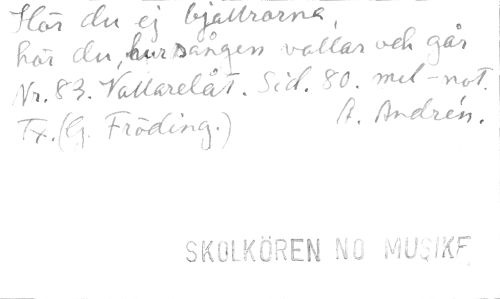 Hör du ej bjällrorna,
hör du, hur sången vallar och går
Nr. 83. Vallarelåt. Sid. 80. mel-not.
Tx. (G. Fröding.) A. Andrén.
SKOLKÖREN NO MUSIKF